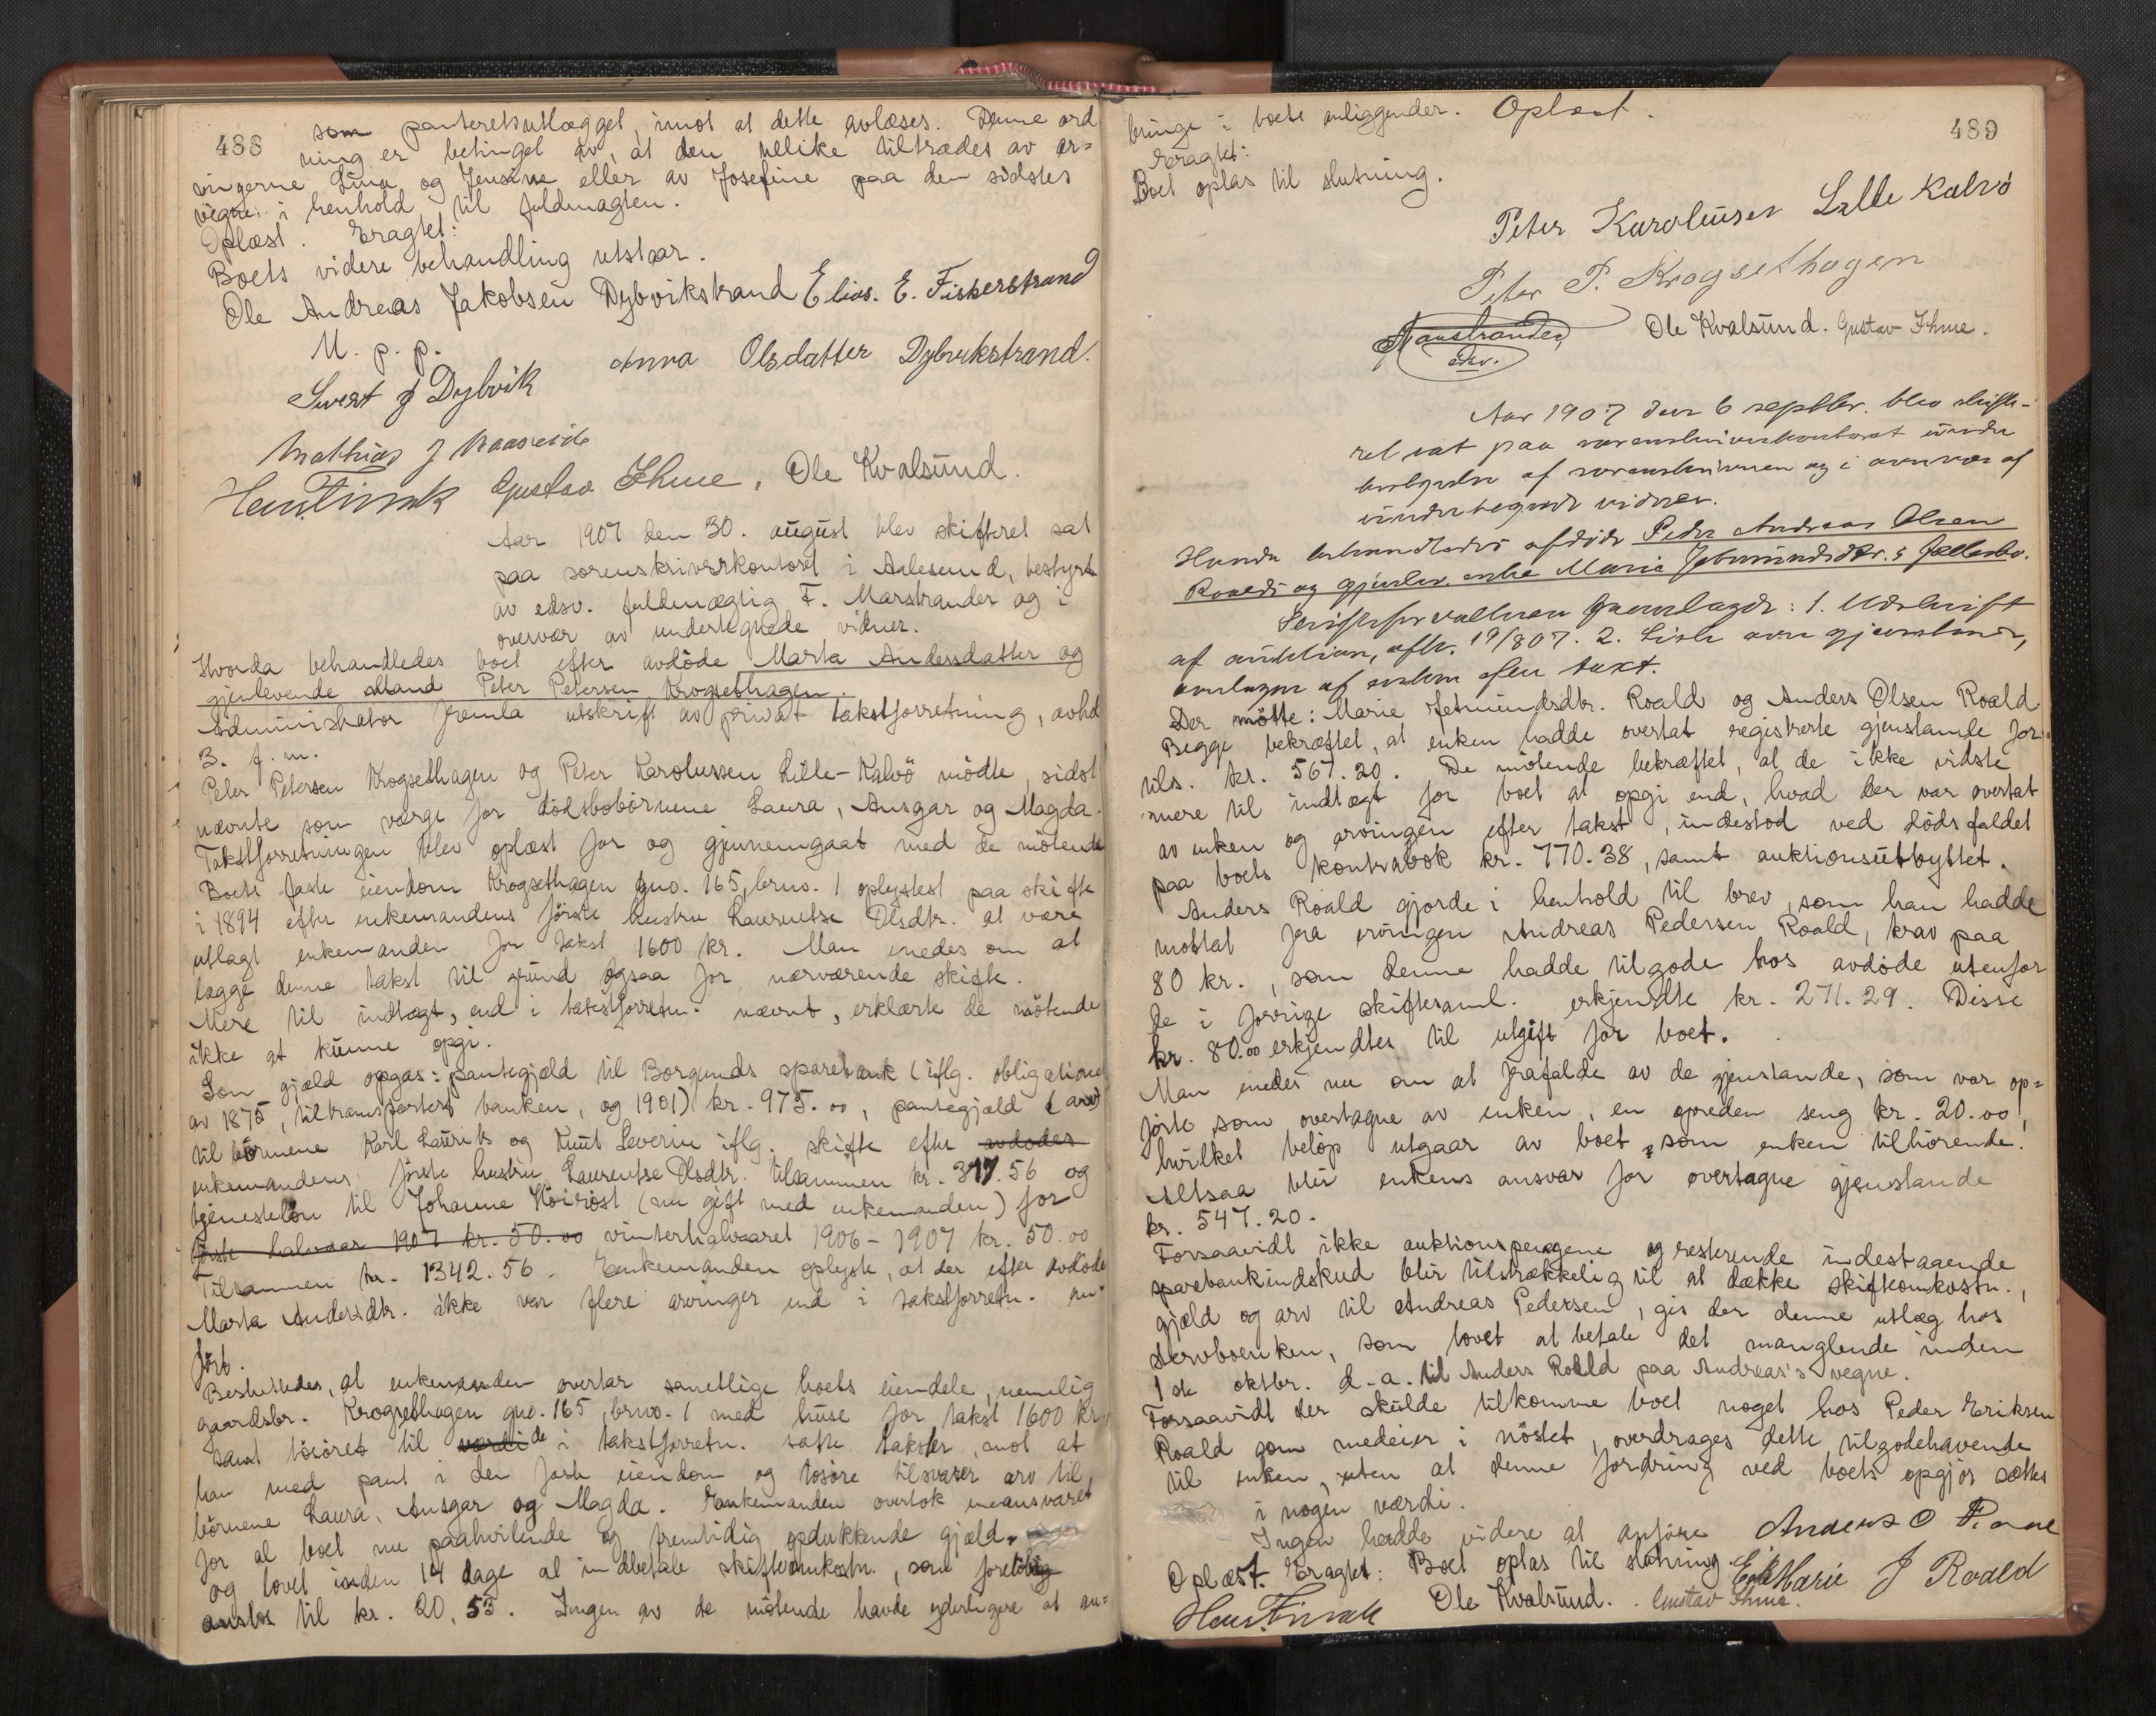 488
som panteretsutlægget, imot at dette avlæses. Denne ord
ning er betinget av, at den ullike tiltrædes av ar=
vingerne Lina og Jensine eller av Josefine paa den sidstes
vegne i henhold til fuldmagten.
Oplæst. Eragtet:
Boets videre behandling utstaar.
Ole Andreas Jakobsen Dybvikstrand Elias. E. Fiskerstrand
M. p. p.
Anna Olsdatter Dybvikstrand.
Sivert J Dybvik
Mathias J
Gustav Ihme, Ole Kvalsund.
Aar 1907 den 30. august blev skifteret sat
paa sorenskriverkontoret i Aalesund, bestyrt
av edsv. fuldmægtig F. Marstrander og i
overvær av undertegnede vidner.
Hvorda behandledes boet efter avdøde Marta Andersdatter og
gjenlevende mand Peter Petersen Krogsethagen.
Administrator fremla utskrift av privat takstforretning, avhd
3. f. m.
Peter Petersen Krogsethagen og Peter Karolussen Lille-Kalvö mødte, sidst
nævnte som værge for dödsbobørnene Laura, Ansgar og Magda.
Takstforretningen blev oplæst for og gjennemgaat med de mötende
Boets faste eiendom Krogsethagen gno. 165, brno. 1 oplystest paa skifte
i 1894 efter enkemandens förste hustru Laurentse Olsdtr. at være
utlagt enkemanden for takst 1600 kr. Man enedes om at
lægge denne takst til grund ogsaa for nærværende skifte.
Mere til indtægt, end i takstforretn. nævnt, erklærte de mötende
ikke at kunne opgi.
Som gjæld opgas: pantegjæld til Borgunds sparebank (iflg. obligationer
av 1875, tiltransportert banken, og 1901) kr. 975.00, pantegjæld (arv)
til börnene Karl Laurits og Knut Severin iflg. skifte efter avdødes
enkemandens förste hustru Laurentse Olsdtr. tilsammen kr. 317.56 og
tjenestelön til Johanne Höiröst (nu gift med enkemanden) for
förste halvaar 1907 kr. 50.00 vinterhalvaaret 1906-1907 kr. 50.00
Tilsammen kr. 1342.56. Enkemanden oplyste, at der efter avdöde
Marta Andersdtr. ikke var flere arvinger end i takstforretn. an=
fört.
Besluttedes, at enkemanden overtar samtlige boets eiendele, nemlig
gaardsbr. Krogsethagen gno. 165, brno. 1 med huse for takst 1600 kr.
samt lösöret til værdi de i takstforretn. satte takster, mot at
han med pant i den faste eiendom og lösöre tilsvarer arv til
börnene Laura, Ansgar og Magda. Enkemanden overtok eneansvaret
for al boet nu paahvilende og fremtidig opdukkende gjæld,
og lovet inden 14 dage at indbetale skifteomkostn., som foreløbig
ansloes til kr. 20,53. Ingen av de mötende havde yderligere at an=
489
bringe i boets anliggender. Oplæst.
Eragtet:
Boet optas til slutning.
Peter Karolusen Lille Kalvö
Peter P. Krogsethagen
Marstrander
edsv.
Ole Kvalsund. Gustav Ihme.
Aar 1907 den 6 septbr. blev skifte-
ret sat paa sorenskriverkontoret under
bestyrelse af sorenskriveren og i overvær af
undertegnede vidner.
Hvorda behandledes afdöde Peder Andreas Olsen
Roalds og gjenlev. enke Marie Jetmundsdtr.s fællesbo.
Skifteforvalteren fremlagde: 1. Udskrift
af auktion, afh. 19/8 07. 2. Liste over gjenstande,
overtagne af enken efter takst.
Der mötte: Marie Jetmundsdtr. Roald og Anders Olsen Roald
Begge bekræftet, at enken hadde overtat registrerte gjenstande for
tils. kr. 567.20. De mötende bekræftet, at de ikke vidste
mere til indtægt for boet at opgi end, hvad der var overtat
av enken og arvingen efter takst, indestod ved dödsfaldet
paa boets kontrabok kr. 770.38, samt auktionsutbyttet.
Anders Roald gjorde i henhold til brev, som han hadde
mottat fra arvingen Andreas Pedersen Roald, krav paa
80 kr., som denne hadde tilgode hos avdöde utenfor
de i forrige skiftesaml. erkjendte kr. 271.29. Disse
kr. 80.00 erkjendtes til utgift for boet.
Man enedes nu om at frafalde av de gjenstande, som var op=
förte som overtagne av enken, en opreden seng kr. 20.00,
hvilket belöp utgaar av boet som enken tilhörende.
Altsaa blir enkens ansvar for overtagne gjenstande
kr. 547.20.
Forsaavidt ikke auktionspengene og resterende indestaaende
sparebankindskud blir tilstrækkelig til at dække skifteomkostn.,
gjæld og arv til Andreas Pedersen, gis der denne utlæg hos
stervboenken, som lovet at betale det manglende inden
1ste oktbr. d. a. til Anders Roald paa Andreas's vegne.
Forsaavidt der skulde tilkomme boet noget hos Peder Eriksen
Roald som medeier i nöstet, overdrages dette tilgodehavende
til enken, uten at denne fordring ved boets opgjör sættes
i nogen værdi.
Ingen hadde videre at anföre Anders O
Oplæst. Eragtet: Boet optas til slutning Marie J Roald
Ole Kvalsund. Gustav Ihme.